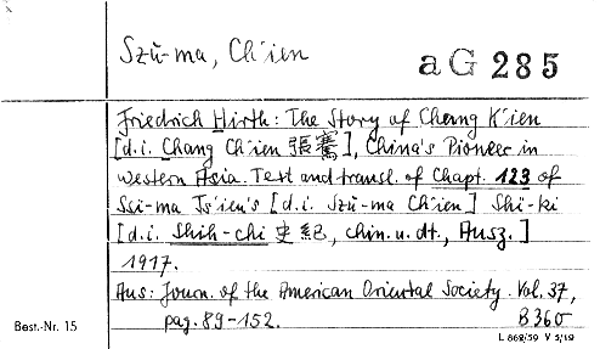 Szŭ-ma, Ch'ien
aG 285
Friedrich Hirth: The Story of Chang K'ien
[d.i. Chang Ch'ien 張騫], China's Pioneer in
western Asia. Text and transl. of Chapt. 123 of
Ssï-ma Ts'ien's [d.i. Szŭ-ma Ch'ien] Shï-ki
[d.i. Shih-chi 史紀, chin. u. dt., Ausz.]
1917.
Aus: Journ. of the American Oriental Society. Vol. 37,
pag. 89-152.
B360
Best.-Nr. 15
L 868/59 V 5/19